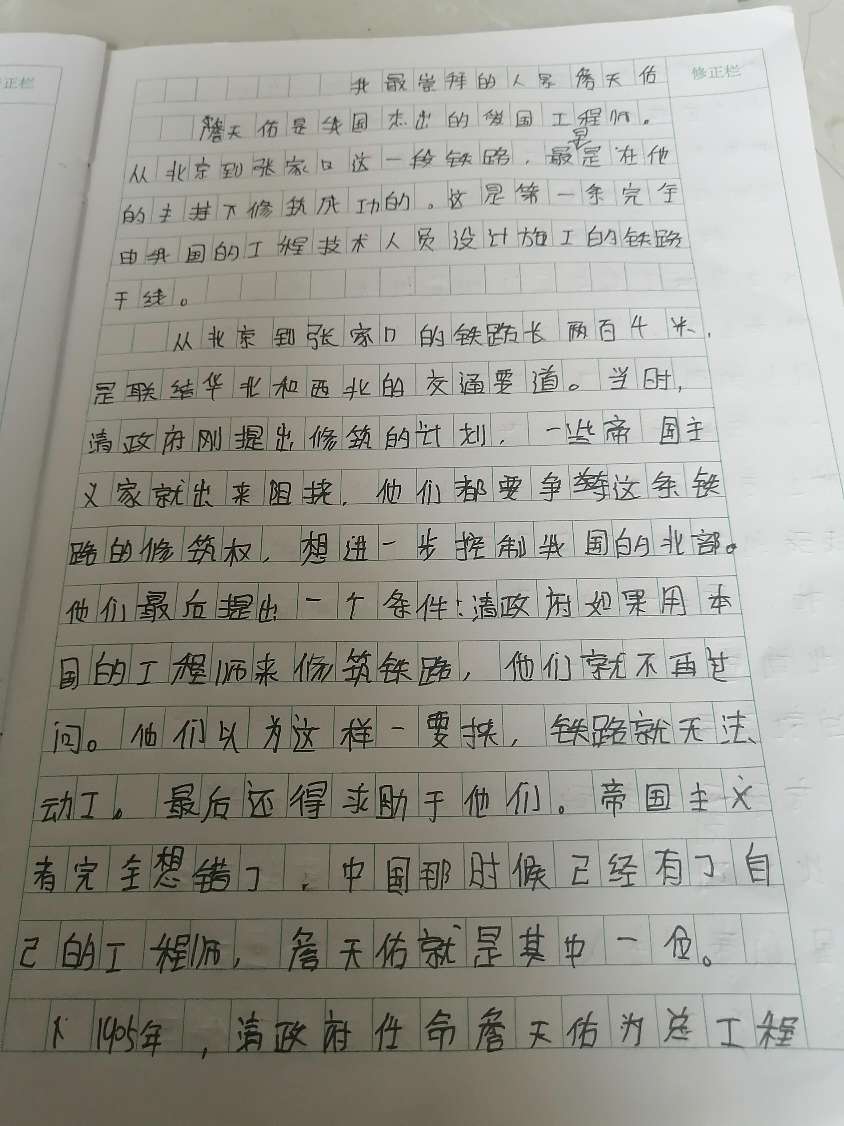 正栏
修正栏
我最崇拜的人家詹天佑
詹天佑是我国杰出的爱国工程师。
从北京到张家口这一段铁路,最是在他
的主持下修筑成功的。这是第一条完全
由我国的工程技术人员设计施工的铁路
干线。
从北京到张家口的铁路长两百千米,
是联结华北和西北的交通要道。当时,
清政府刚提出修筑的计划,一些帝国主
义家就出来阻挠,他们都要争夺这条铁
路的修筑权,想进一步控制我国的北部。
他们最后提出一个条件:清政府如果用本
国的工程师来修筑铁路,他们就不再过
问。他们以为这样一要挟,铁路就无法
动工。最后还得求助于他们。帝国主义
者完全想错了,中国那时候已经有了自
己的工程师,詹天佑就是其中一位。
1905年,清政府任命詹天佑为总工程